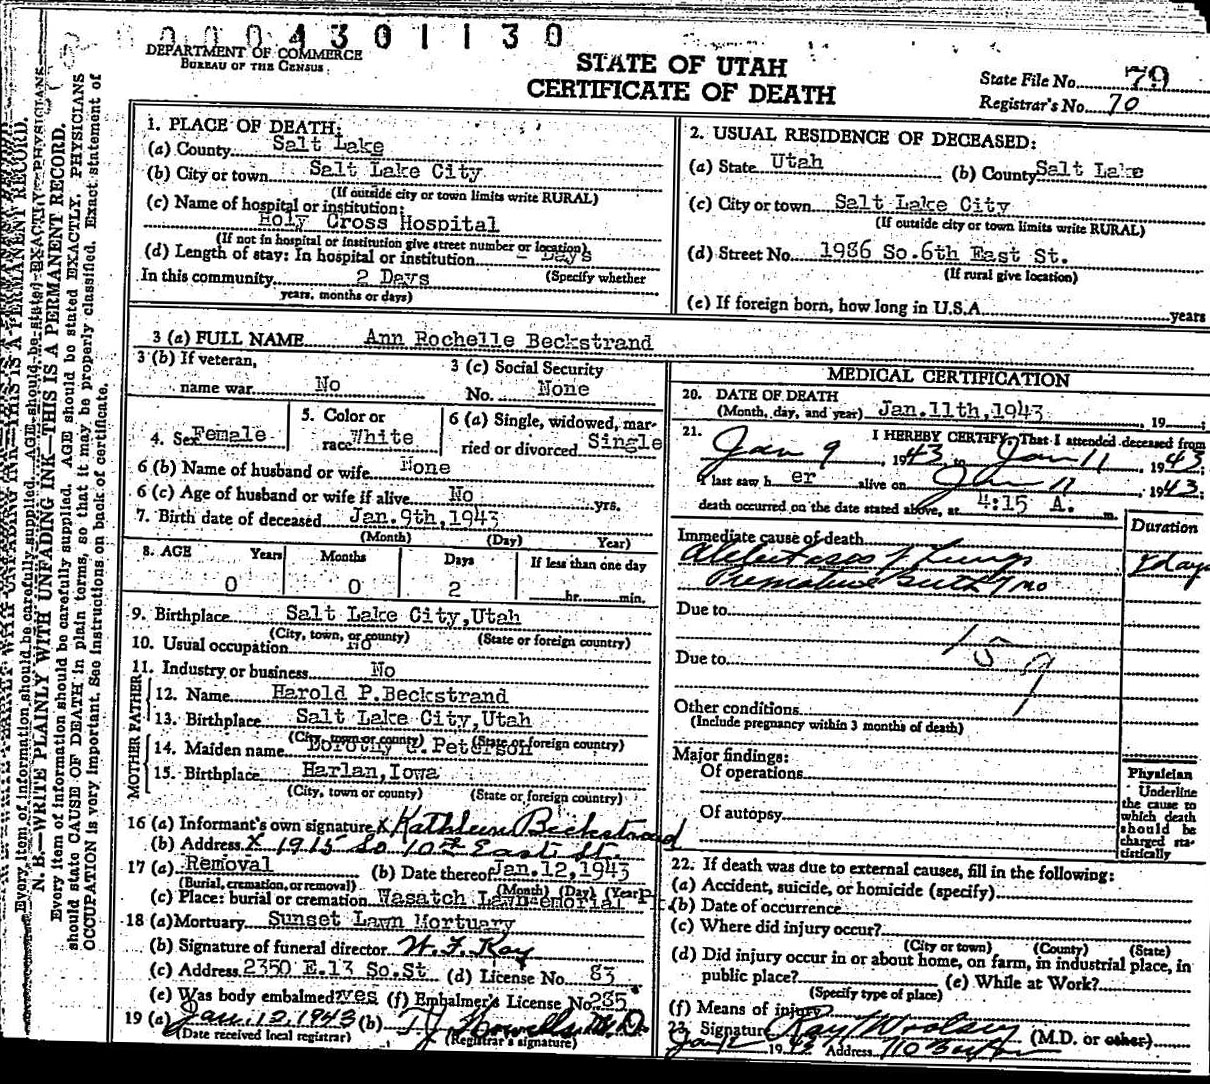 0004301130
DEPARTMENT OF COMMERCE
BUREAU OF THE CENSUS
STATE OF UTAH
CERTIFICATE OF DEATH
State File No. 79
Registrar's No. 70
N. B.—WRITE PLAINLY WITH UNFADING INK—THIS IS A PERMANENT RECORD.
Every item of information should be carefully supplied. AGE should be stated EXACTLY. PHYSICIANS
should state CAUSE OF DEATH in plain terms, so that it may be properly classified. Exact statement of
OCCUPATION is very important. See instructions on back of certificate.
1. PLACE OF DEATH:
(a) County Salt Lake
(b) City or town Salt Lake City
(If outside city or town limits write RURAL)
(c) Name of hospital or institution:
Holy Cross Hospital
(If not in hospital or institution give street number or location)
(d) Length of stay: In hospital or institution Days
In this community 2 Days (Specify whether
years, months or days)
2. USUAL RESIDENCE OF DECEASED:
(a) State Utah (b) County Salt Lake
(c) City or town Salt Lake City
(If outside city or town limits write RURAL)
(d) Street No. 1936 So. 6th East St.
(If rural give location)
(e) If foreign born, how long in U.S.A. years
3 (a) FULL NAME Ann Rochelle Beckstrand
3 (b) If veteran,
name war No
3 (c) Social Security
No. None
4. Sex Female
5. Color or
race White
6 (a) Single, widowed, mar-
ried or divorced Single
6 (b) Name of husband or wife None
6 (c) Age of husband or wife if alive No yrs.
7. Birth date of deceased Jan. 9th, 1943
(Month) (Day) Year)
8. AGE Years Months Days If less than one day
0 0 2 hr. min.
9. Birthplace Salt Lake City, Utah
(City, town, or county) (State or foreign country)
10. Usual occupation No
11. Industry or business No
FATHER
12. Name Harold P. Beckstrand
13. Birthplace Salt Lake City, Utah
(City, town or county) (State or foreign country)
MOTHER
14. Maiden name Dorothy Peterson
15. Birthplace Harlan, Iowa
(City, town or county) (State or foreign country)
16 (a) Informant's own signature X Kathleen Beckstrand
(b) Address X 1915 So 10th East St
17 (a) Removal (b) Date thereof Jan. 12, 1943
(Burial, cremation, or removal) (Month) (Day) (Year)
(c) Place: burial or cremation Wasatch Lawn
18 (a) Mortuary Sunset Lawn Mortuary
(b) Signature of funeral director
(c) Address 2350 E. 13 So. St (d) License No. 83
(e) Was body embalmed? yes (f) Embalmer's License No. 235
19 (a) Jan. 12, 1943 (b) T J Howells M.D.
(Date received local registrar) (Registrar's signature)
MEDICAL CERTIFICATION
20. DATE OF DEATH
(Month, day, and year) Jan. 11th, 1943, 19 ;
21. I HEREBY CERTIFY, That I attended deceased from
Jan 9, 1943 to Jan 11, 1943;
I last saw her alive on Jan 11, 1943;
death occurred on the date stated above, at 4:15 A. m.
Immediate cause of death Duration
Atelectasis of Lungs 2 days
Premature birth 7 mo
Due to
159
Due to
Other conditions
(Include pregnancy within 3 months of death)
Major findings:
Of operations
Of autopsy
Physician
Underline
the cause to
which death
should be
charged sta-
tistically
22. If death was due to external causes, fill in the following:
(a) Accident, suicide, or homicide (specify)
(b) Date of occurrence
(c) Where did injury occur?
(City or town) (County) (State)
(d) Did injury occur in or about home, on farm, in industrial place, in
public place? (e) While at Work?
(Specify type of place)
(f) Means of injury
23. Signature Ray Woolsey (M.D. or other)
Jan 12 1943 Address